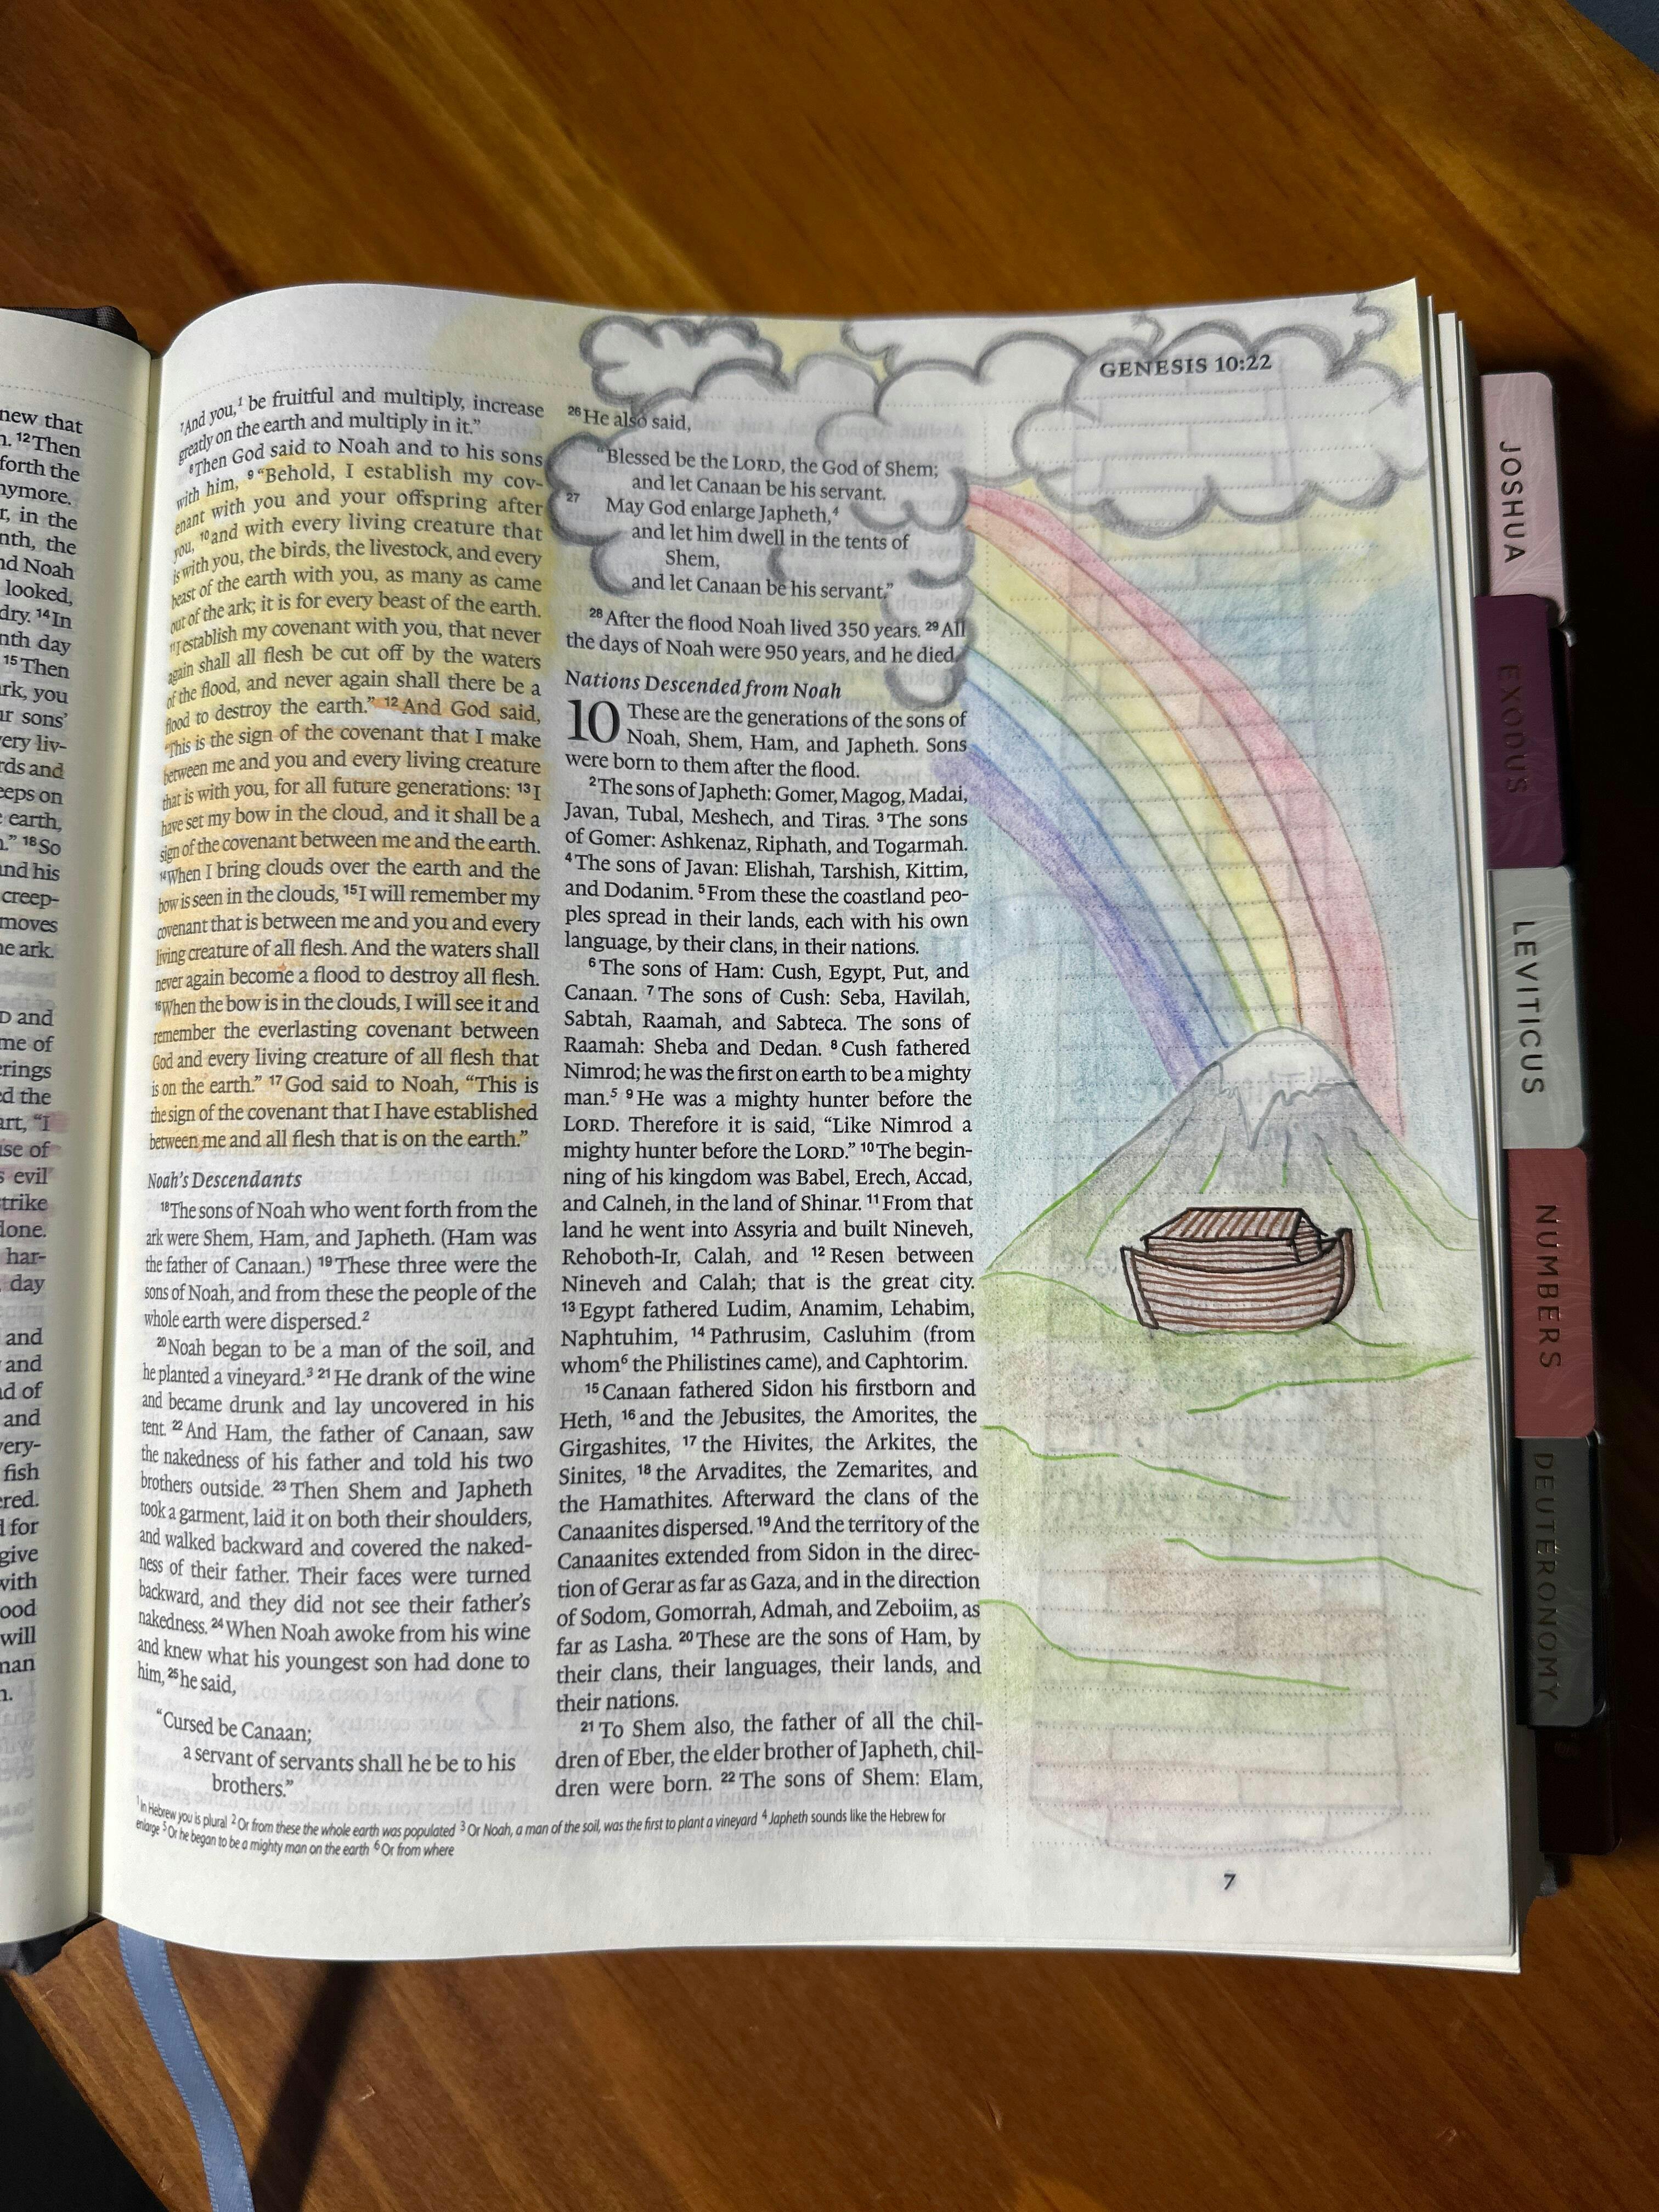 new that
12Then
forth the
nymore.
r, in the
nth, the
nd Noah
looked,
dry. 14In
nth day
15Then
ark, you
ur sons'
ery liv-
rds and
eeps on
earth,
18So
and his
creep-
moves
he ark.
D and
me of
erings
ed the
art, "I
use of
evil
strike
done.
har-
day
and
and
ad of
and
very-
fish
ered.
d for
give
with
ood
will
man
n.
7And you,1 be fruitful and multiply, increase
greatly on the earth and multiply in it."
8Then God said to Noah and to his sons
with him, 9 "Behold, I establish my cov-
enant with you and your offspring after
you, 10and with every living creature that
is with you, the birds, the livestock, and every
beast of the earth with you, as many as came
out of the ark; it is for every beast of the earth.
11I establish my covenant with you, that never
again shall all flesh be cut off by the waters
of the flood, and never again shall there be a
flood to destroy the earth." 12 And God said,
"This is the sign of the covenant that I make
between me and you and every living creature
that is with you, for all future generations: 13 I
have set my bow in the cloud, and it shall be a
sign of the covenant between me and the earth.
14When I bring clouds over the earth and the
bow is seen in the clouds, 15I will remember my
covenant that is between me and you and every
living creature of all flesh. And the waters shall
never again become a flood to destroy all flesh.
16When the bow is in the clouds, I will see it and
remember the everlasting covenant between
God and every living creature of all flesh that
is on the earth." 17God said to Noah, "This is
the sign of the covenant that I have established
between me and all flesh that is on the earth."
Noah's Descendants
18The sons of Noah who went forth from the
ark were Shem, Ham, and Japheth. (Ham was
the father of Canaan.) 19These three were the
sons of Noah, and from these the people of the
whole earth were dispersed.2
20Noah began to be a man of the soil, and
he planted a vineyard.3 21He drank of the wine
and became drunk and lay uncovered in his
tent. 22And Ham, the father of Canaan, saw
the nakedness of his father and told his two
brothers outside. 23Then Shem and Japheth
took a garment, laid it on both their shoulders,
and walked backward and covered the naked-
ness of their father. Their faces were turned
backward, and they did not see their father's
nakedness. 24When Noah awoke from his wine
and knew what his youngest son had done to
him, 25he said,
"Cursed be Canaan;
a servant of servants shall he be to his
brothers."
GENESIS 10:22
26He also said,
"Blessed be the LORD, the God of Shem;
and let Canaan be his servant.
27 May God enlarge Japheth,4
and let him dwell in the tents of
Shem,
and let Canaan be his servant."
28After the flood Noah lived 350 years. 29All
the days of Noah were 950 years, and he died.
Nations Descended from Noah
10 These are the generations of the sons of
Noah, Shem, Ham, and Japheth. Sons
were born to them after the flood.
2The sons of Japheth: Gomer, Magog, Madai,
Javan, Tubal, Meshech, and Tiras. 3The sons
of Gomer: Ashkenaz, Riphath, and Togarmah.
4The sons of Javan: Elishah, Tarshish, Kittim,
and Dodanim. 5From these the coastland peo-
ples spread in their lands, each with his own
language, by their clans, in their nations.
6The sons of Ham: Cush, Egypt, Put, and
Canaan. 7The sons of Cush: Seba, Havilah,
Sabtah, Raamah, and Sabteca. The sons of
Raamah: Sheba and Dedan. 8Cush fathered
Nimrod; he was the first on earth to be a mighty
man.5 9He was a mighty hunter before the
LORD. Therefore it is said, "Like Nimrod a
mighty hunter before the LORD." 10The begin-
ning of his kingdom was Babel, Erech, Accad,
and Calneh, in the land of Shinar. 11From that
land he went into Assyria and built Nineveh,
Rehoboth-Ir, Calah, and 12 Resen between
Nineveh and Calah; that is the great city.
13Egypt fathered Ludim, Anamim, Lehabim,
Naphtuhim, 14 Pathrusim, Casluhim (from
whom6 the Philistines came), and Caphtorim.
15Canaan fathered Sidon his firstborn and
Heth, 16and the Jebusites, the Amorites, the
Girgashites, 17 the Hivites, the Arkites, the
Sinites, 18 the Arvadites, the Zemarites, and
the Hamathites. Afterward the clans of the
Canaanites dispersed. 19And the territory of the
Canaanites extended from Sidon in the direc-
tion of Gerar as far as Gaza, and in the direction
of Sodom, Gomorrah, Admah, and Zeboiim, as
far as Lasha. 20These are the sons of Ham, by
their clans, their languages, their lands, and
their nations.
21To Shem also, the father of all the chil-
dren of Eber, the elder brother of Japheth, chil-
dren were born. 22The sons of Shem: Elam,
1In Hebrew you is plural 2Or from these the whole earth was populated 3Or Noah, a man of the soil, was the first to plant a vineyard 4Japheth sounds like the Hebrew for
enlarge 5Or he began to be a mighty man on the earth 6Or from where
7
JOSHUA
EXODUS
LEVITICUS
NUMBERS
DEUTERONOMY